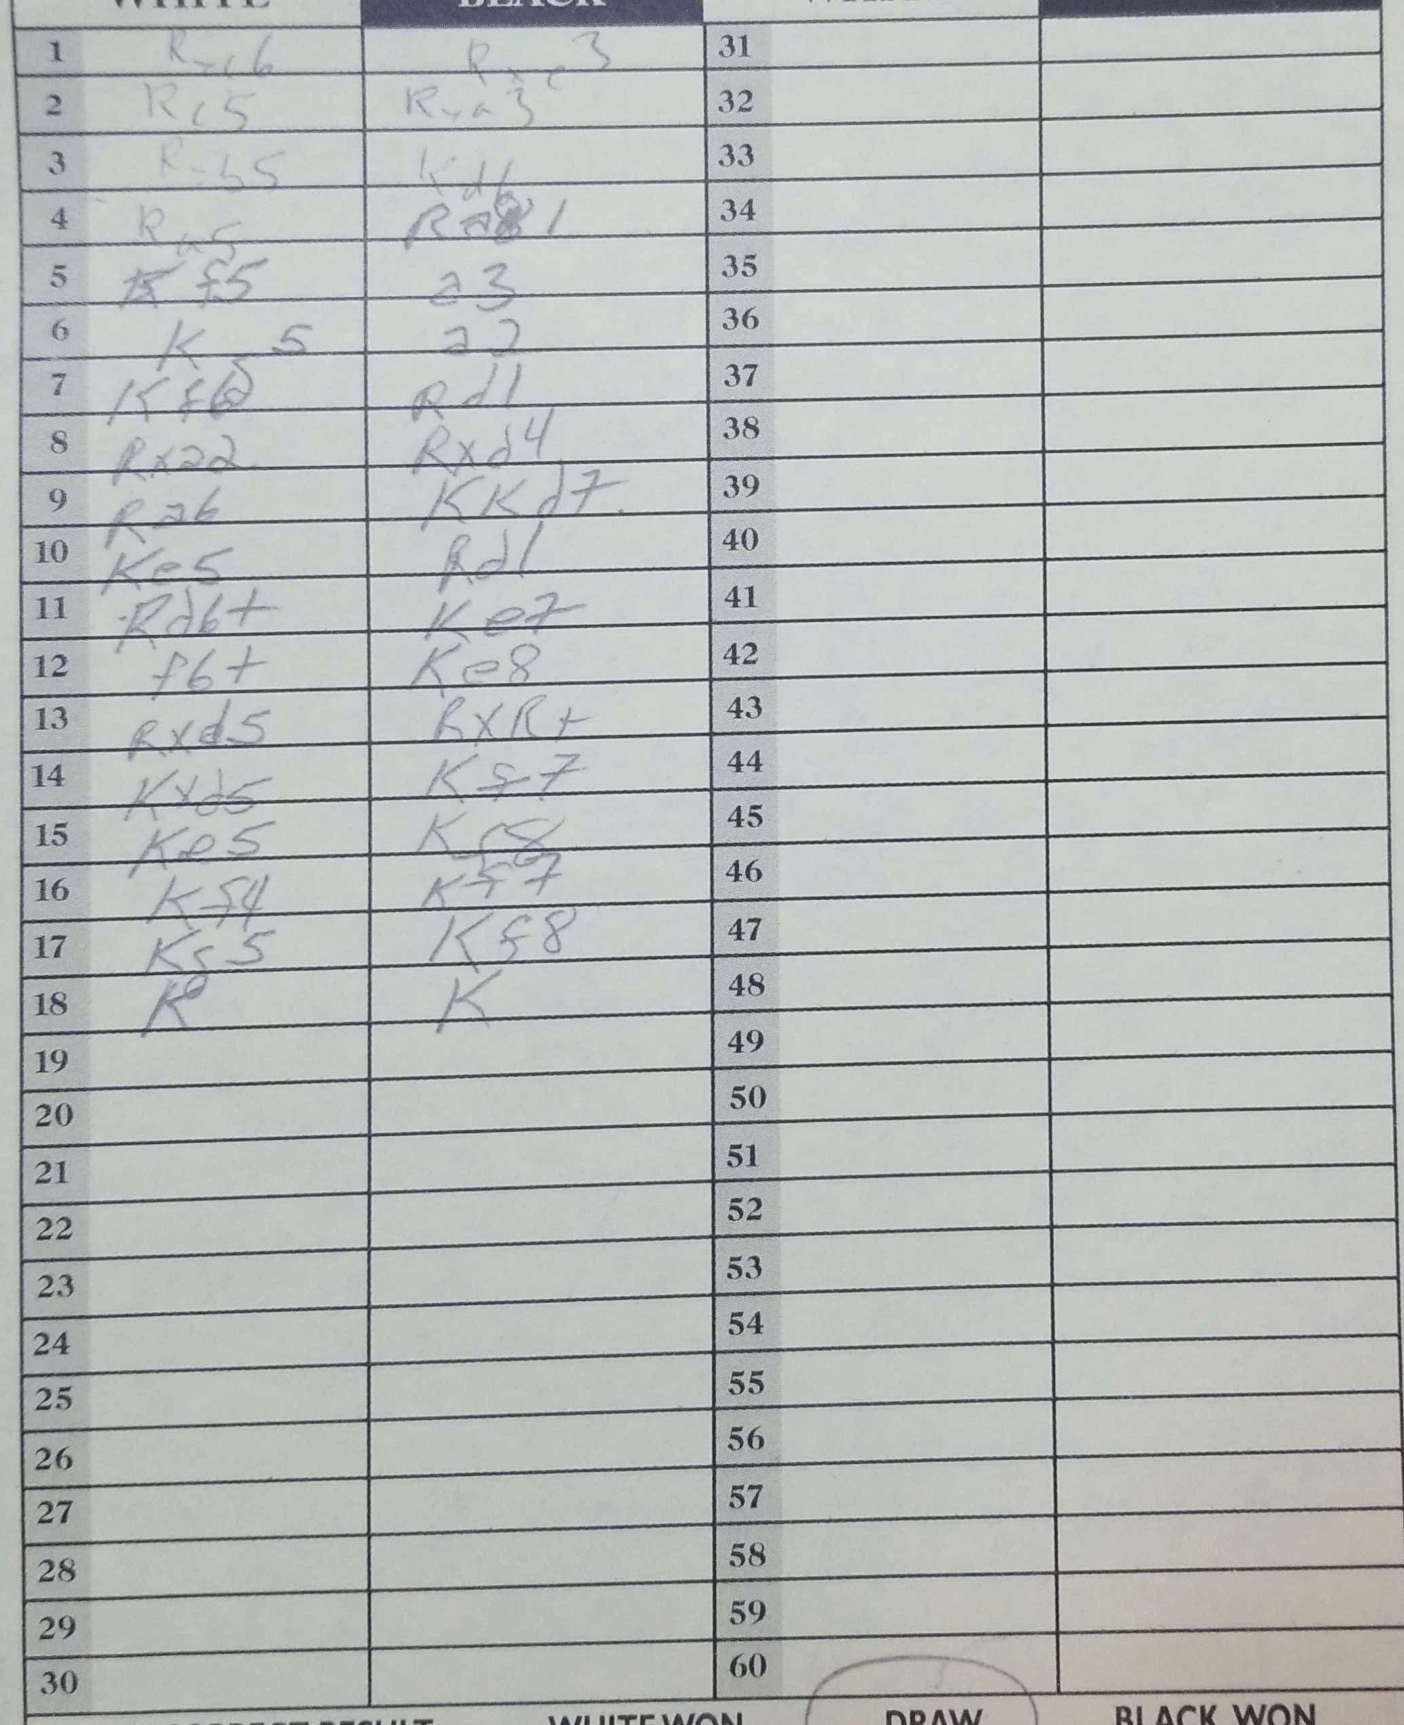 WHITE BLACK WHITE
1 Rxc6 Rxe3 31
2 Rc5 Rxa3 32
3 Rxb5 Kd6 33
4 Ra5 Ra1 34
5 f5 a3 35
6 K 5 a2 36
7 Kf6 Rd1 37
8 Rxa2 Rxd4 38
9 Ra6 KKd7. 39
10 Ke5 Rd1 40
11 Rd6+ Ke7 41
12 f6+ Ke8 42
13 Rxd5 RxR+ 43
14 Kxd5 Kf7 44
15 Ke5 Kf8 45
16 Kf4 Kf7 46
17 Kg5 Kf8 47
18 K K 48
19 49
20 50
21 51
22 52
23 53
24 54
25 55
26 56
27 57
28 58
29 59
30 60
CORRECT RESULT WHITE WON DRAW BLACK WON